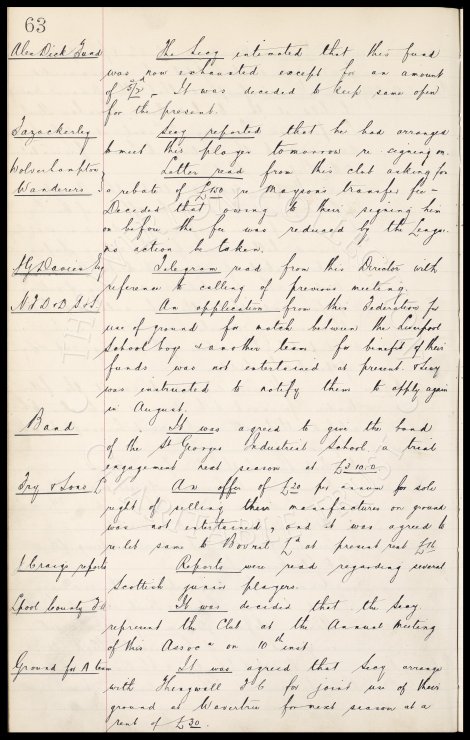 63
Alex Dick Fund
The Secy intimated that this fund
was now exhausted except for an amount
of 5/2d. It was decided to keep same open
for the present.
Tazackerley
Secy reported that he had arranged
to meet this player tomorrow re signing on.
Wolverhampton
Wanderers
Letter read from this club asking for
a rebate of £150 re Maysons transfer fee -
Decided that owing to their signing him
on before the fee was reduced by the League
no action be taken.
Davies Esq
Telegram read from this Director with
reference to calling of previous meeting.
An application from this Federation for
use of ground for match between the Liverpool
School boys & another team for benefit of their
funds was not entertained at present. & Secy
was instructed to notify them to apply again
in August.
Band
It was agreed to give the band
of the St Georges Industrial School a trial
engagement next season at £3.10.0
Fry & Sons Ld
An offer of £20 per annum for sole
right of selling their manufactures on ground
was not entertained, and it was agreed to
re-let same to Bovril Ld at present rent
J Craigs reports
Reports were read regarding several
Scottish junior players.
Lpool County F.A
It was decided that the Secy.
represent the Club at the Annual Meeting
of this Assocn on 10th inst
Ground for A team
It was agreed that Secy arrange
with Thingwall F C for joint use of their
ground at Wavertree for next season at a
rent of £30.